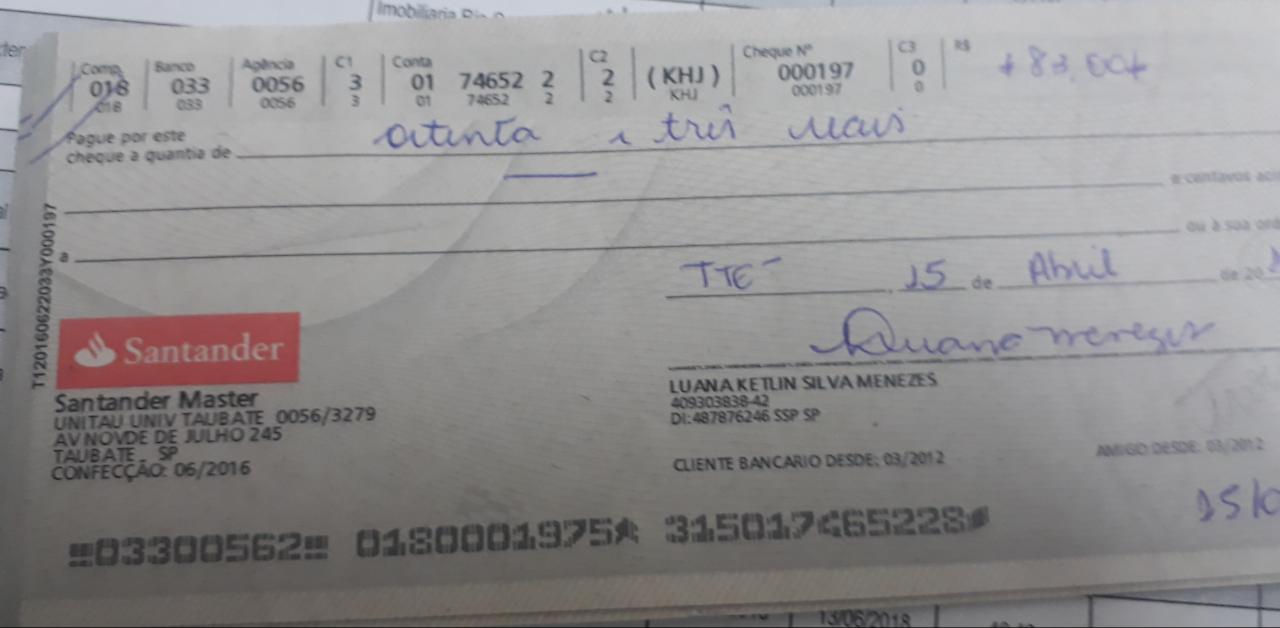 Imobiliaria Rio
Comp. Banco Agência C1 Conta C2 Cheque Nº C3 R$
018 033 0056 3 01 74652 2 2 (KHJ) 000197 0 # 83,00#
018 033 0056 3 01 74652 2 2 KHJ 000197 0
Pague por este
cheque a quantia de oitenta e três reais
e centavos
a ou à sua
TTE 15 de Abril de 20
Luana Menezes
T1201606622033Y000197
Santander
Santander Master
UNITAU UNIV TAUBATE 0056/3279
AV NOVDE DE JULHO 245
TAUBATE SP
CONFECÇÃO: 06/2016
LUANA KETLIN SILVA MENEZES
409303838-42
DI:487876246 SSP SP
CLIENTE BANCARIO DESDE: 03/2012 AMIGO DESDE: 03/2012
03300562 0180001975 315017465228
13/06/2018